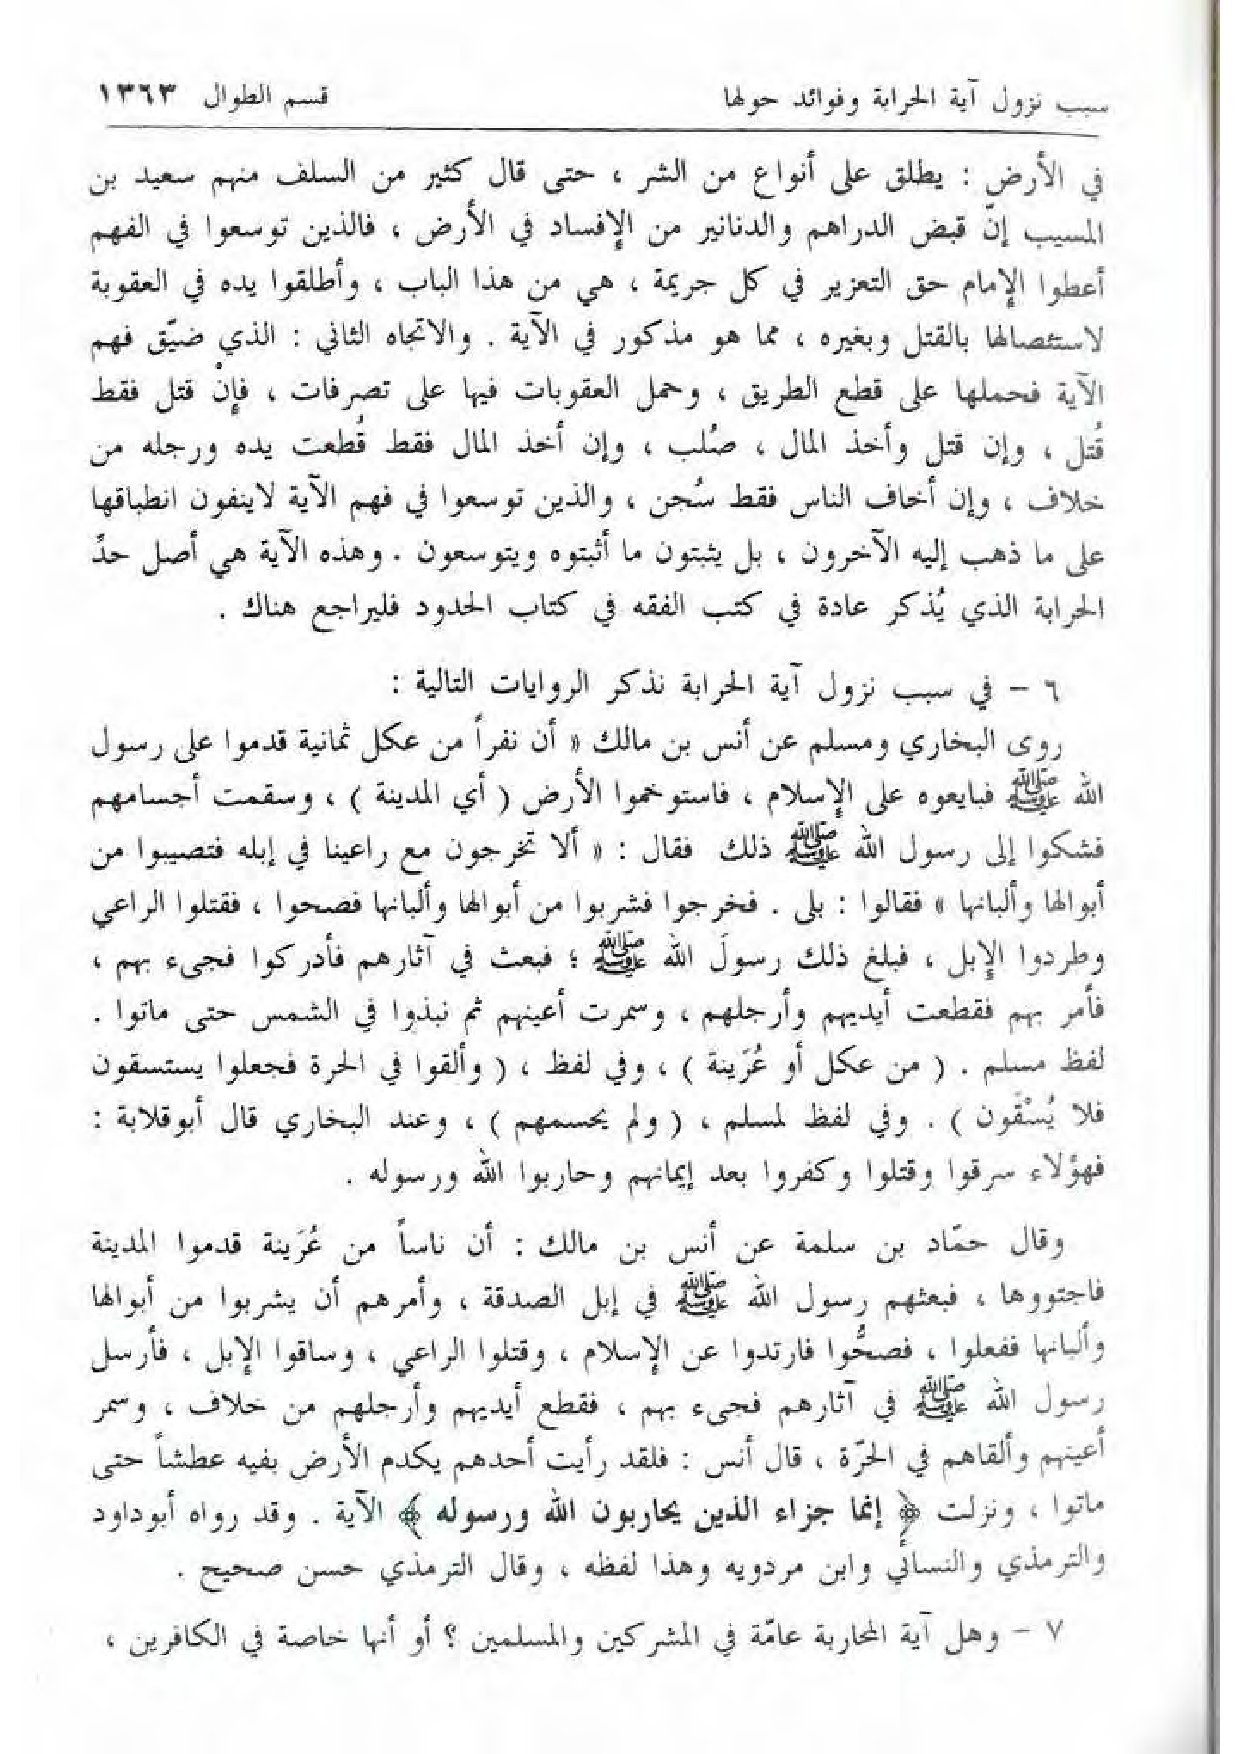 سبب نزول آية الحرابة وفوائد حولها
قسم الطوال ١٣٦٣
في الأرض : يطلق على أنواع من الشر ، حتى قال كثير من السلف منهم سعيد بن
المسيب إنّ قبض الدراهم والدنانير من الإفساد في الأرض ، فالذين توسعوا في الفهم
أعطوا الإمام حق التعزير في كل جريمة ، هي من هذا الباب ، وأطلقوا يده في العقوبة
لاستئصالها بالقتل وبغيره ، مما هو مذكور في الآية . والاتجاه الثاني : الذي ضيّق فهم
الآية فحملها على قطع الطريق ، وحمل العقوبات فيها على تصرفات ، فإنْ قتل فقط
قُتل ، وإن قتل وأخذ المال ، صُلب ، وإن أخذ المال فقط قُطعت يده ورجله من
خلاف ، وإن أخاف الناس فقط سُجن ، والذين توسعوا في فهم الآية لاينفون انطباقها
على ما ذهب إليه الآخرون ، بل يثبتون ما أثبتوه ويتوسعون . وهذه الآية هي أصل حدِّ
الحرابة الذي يُذكر عادة في كتب الفقه في كتاب الحدود فليراجع هناك .
٦ - في سبب نزول آية الحرابة نذكر الروايات التالية :
روى البخاري ومسلم عن أنس بن مالك « أن نفراً من عكل ثمانية قدموا على رسول
الله ﷺ فبايعوه على الإسلام ، فاستوخموا الأرض ( أي المدينة ) ، وسقمت أجسامهم
فشكوا إلى رسول الله ﷺ ذلك فقال : « ألا تخرجون مع راعينا في إبله فتصيبوا من
أبوالها وألبانها » فقالوا : بلى . فخرجوا فشربوا من أبوالها وألبانها فصحوا ، فقتلوا الراعي
وطردوا الإبل ، فبلغ ذلك رسولَ الله ﷺ ؛ فبعث في آثارهم فأدركوا فجيء بهم ،
فأمر بهم فقطعت أيديهم وأرجلهم ، وسمرت أعينهم ثم نبذوا في الشمس حتى ماتوا .
لفظ مسلم . ( من عكل أو عُرَينة ) ، وفي لفظ ، ( وألقوا في الحرة فجعلوا يستسقون
فلا يُسْقَون ) . وفي لفظ لمسلم ، ( ولم يحسمهم ) ، وعند البخاري قال أبوقلابة :
فهؤلاء سرقوا وقتلوا وكفروا بعد إيمانهم وحاربوا الله ورسوله .
وقال حمّاد بن سلمة عن أنس بن مالك : أن ناساً من عُرَينة قدموا المدينة
فاجتووها ، فبعثهم رسول الله ﷺ في إبل الصدقة ، وأمرهم أن يشربوا من أبوالها
وألبانها ففعلوا ، فصحُّوا فارتدوا عن الإسلام ، وقتلوا الراعي ، وساقوا الإبل ، فأرسل
رسول الله ﷺ في آثارهم فجيء بهم ، فقطع أيديهم وأرجلهم من خلاف ، وسمر
أعينهم وألقاهم في الحرّة ، قال أنس : فلقد رأيت أحدهم يكدم الأرض بفيه عطشاً حتى
ماتوا ، ونزلت ﴿ إنما جزاء الذين يحاربون الله ورسوله ﴾ الآية . وقد رواه أبوداود
والترمذي والنسائي وابن مردويه وهذا لفظه ، وقال الترمذي حسن صحيح .
٧ - وهل آية المحاربة عامّة في المشركين والمسلمين ؟ أو أنها خاصة في الكافرين ،